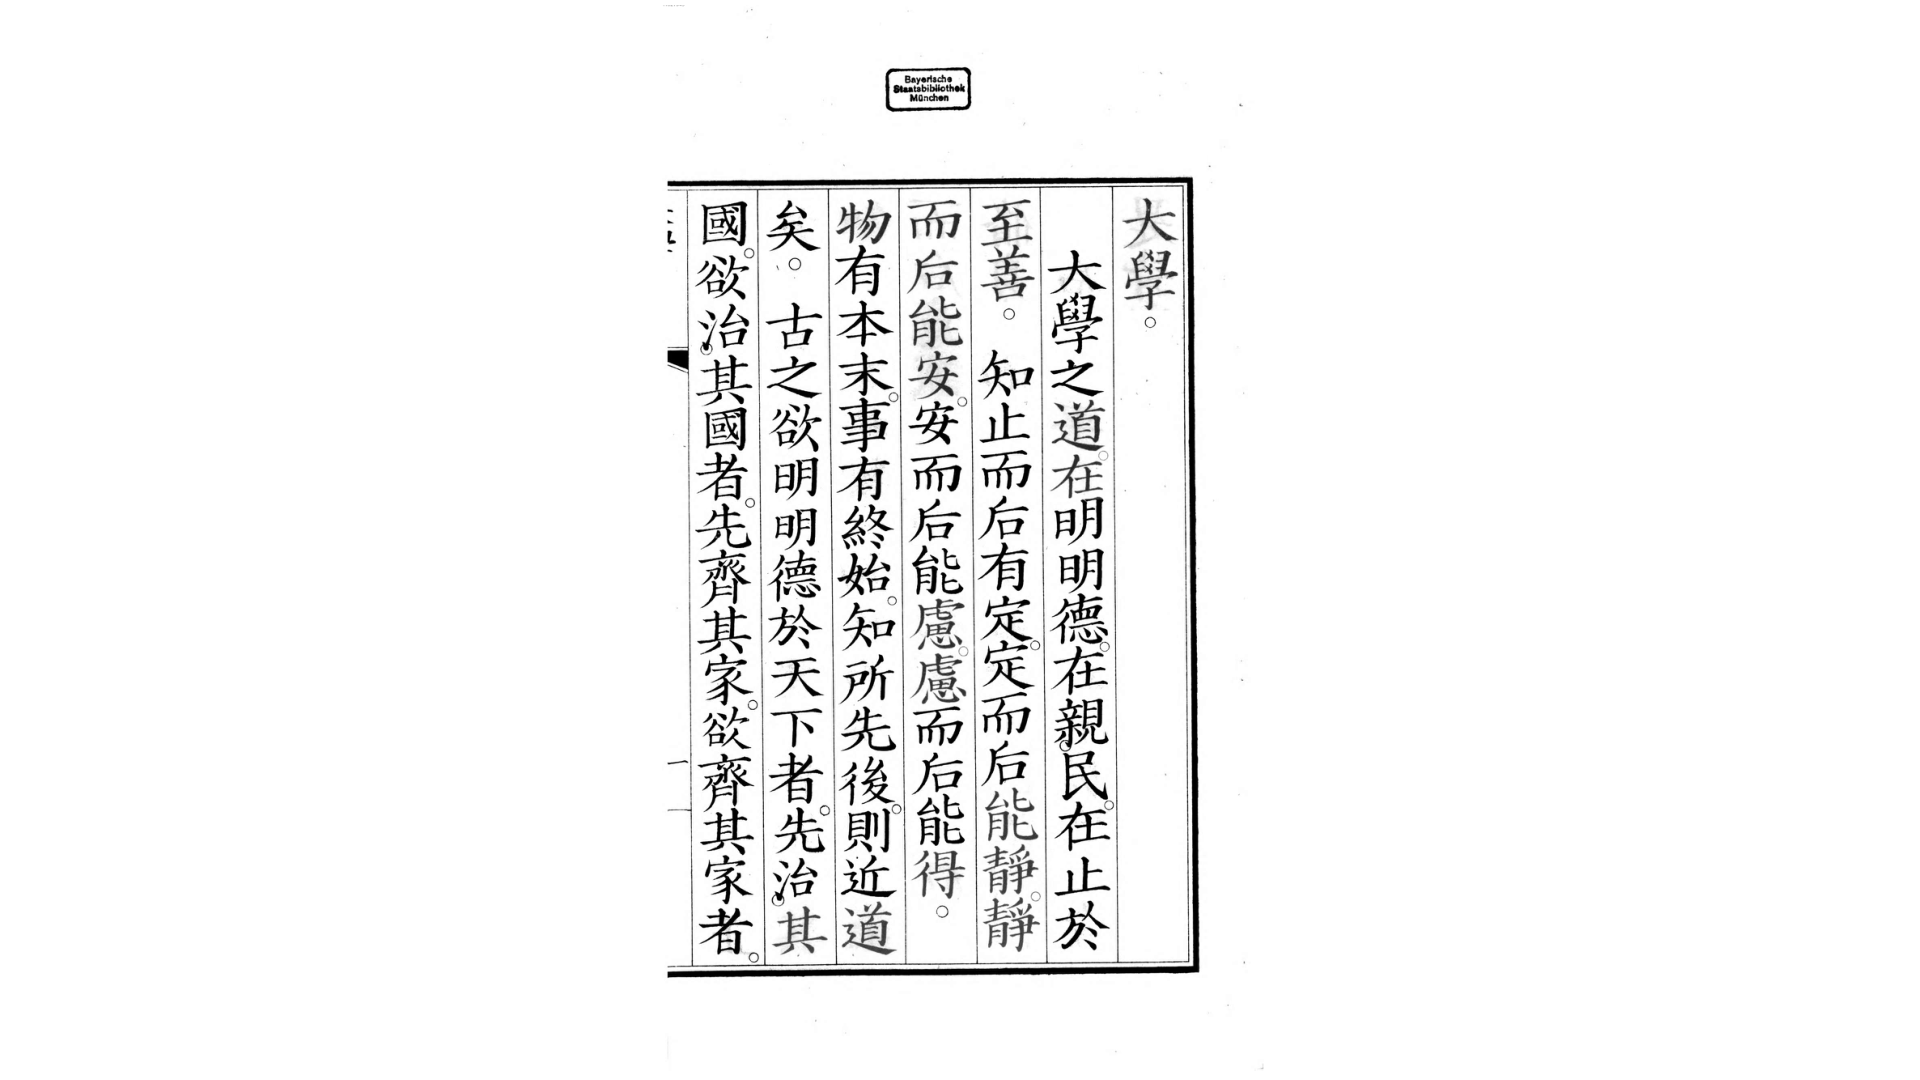 Bayerische
Staatsbibliothek
München
大學。
大學之道。在明明德。在親民。在止於
至善。　知止而后有定。定而后能靜。靜
而后能安。安而后能慮。慮而后能得。
物有本末。事有終始。知所先後。則近道
矣。　古之欲明明德於天下者。先治其
國。欲治其國者。先齊其家。欲齊其家者。